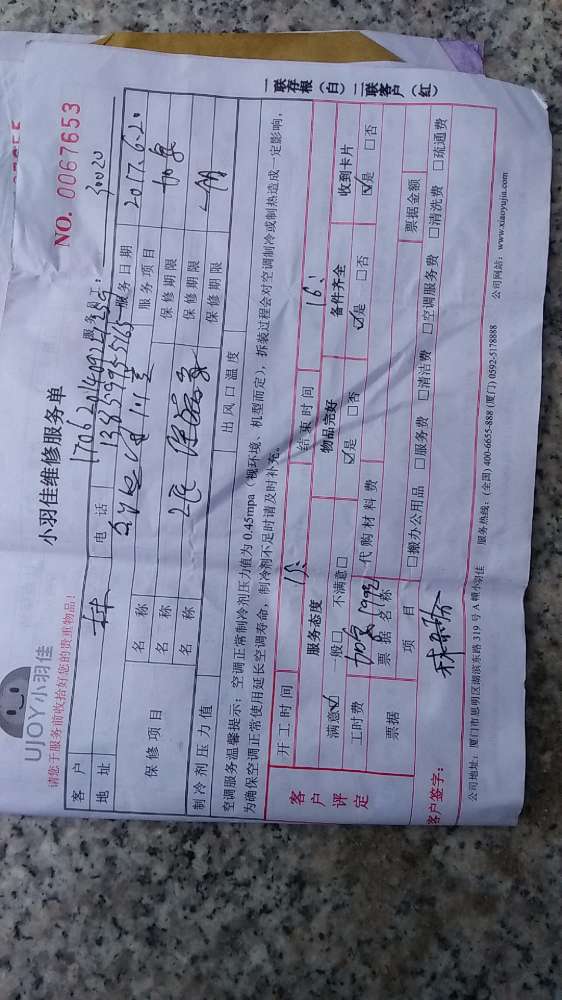 UJOY小羽佳
小羽佳维修服务单
NO. 0067653
请您于服务前收拾好您的贵重物品!
客户 林 电话 服务员: 30020
地址 服务日期 2017.6.20
保修项目 名称 服务项目 加氨
名称 保修期限
名称 保修期限
制冷剂压力值 出风口温度 保修期限
空调服务温馨提示:空调正常制冷剂压力值为 0.45mpa(视环境、机型而定),拆装过程会对空调制冷或制热造成一定影响,
为确保空调正常使用延长空调寿命,制冷剂不足时请及时补充。
客户评定
开工时间 15: 结束时间 16:
服务态度 物品完好 备件齐全 收到卡片
满意☑ 一般□ 不满意□ ☑是 □否 ☑是 □否 ☑是 □否
工时费 代购材料费 票据金额
票据 票据名称
项目 □搬办公用品 □服务费 □清洁费 □空调服务费 □清洗费 □疏通费
客户签字:
公司地址:厦门市思明区湖滨东路 319 号 A 幢小羽佳 服务热线:(全国) 400-6655-888 (厦门) 0592-5178888 公司网站:www.xiaoyujia.com
一联存根(白) 二联客户(红)